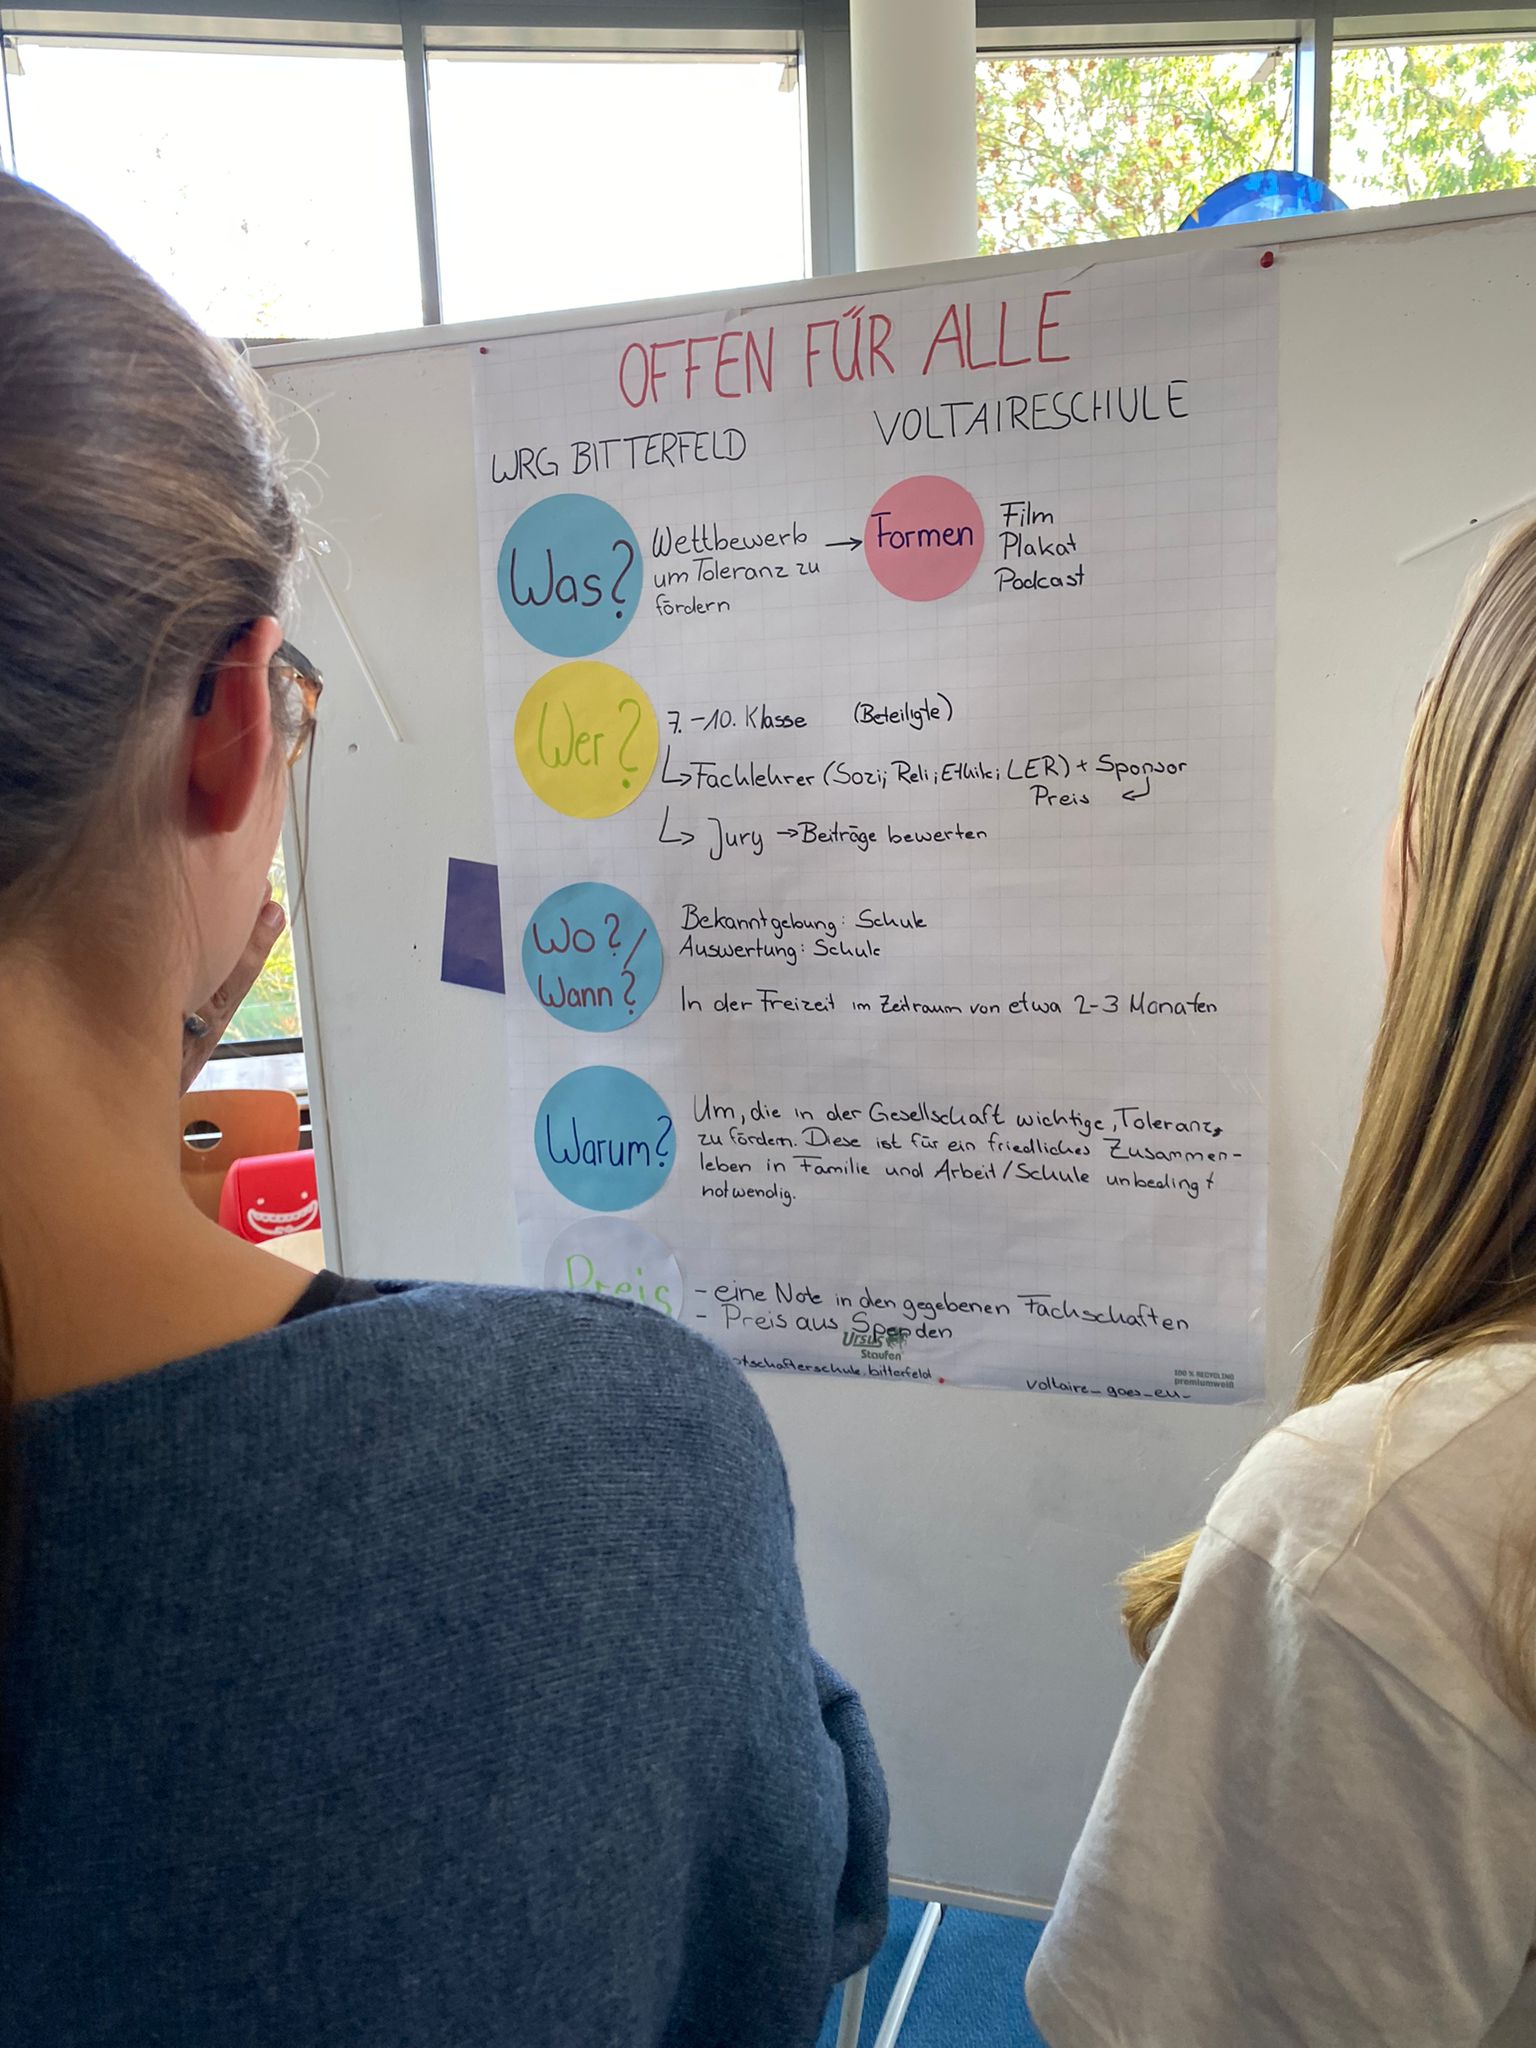 OFFEN FÜR ALLE
WRG BITTERFELD
VOLTAIRESCHULE
Was?
Wettbewerb
um Toleranz zu
fördern
→ Formen
Film
Plakat
Podcast
Wer?
7. - 10. Klasse (Beteiligte)
↳ Fachlehrer (Sozi; Reli; Ethik; LER) + Sponsor
Preis ↵
↳ Jury → Beiträge bewerten
Wo? /
Wann?
Bekanntgebung: Schule
Auswertung: Schule
In der Freizeit im Zeitraum von etwa 2-3 Monaten
Warum?
Um, die in der Gesellschaft wichtige, Toleranz,
zu fördern. Diese ist für ein friedliches Zusammen-
leben in Familie und Arbeit/Schule unbedingt
notwendig.
Preis
- eine Note in den gegebenen Fachschaften
- Preis aus Spenden
Ursus
Staufen
otschafterschule.bitterfeld.
voltaire_goes_eu_
100% RECYCLING
premiumweiß